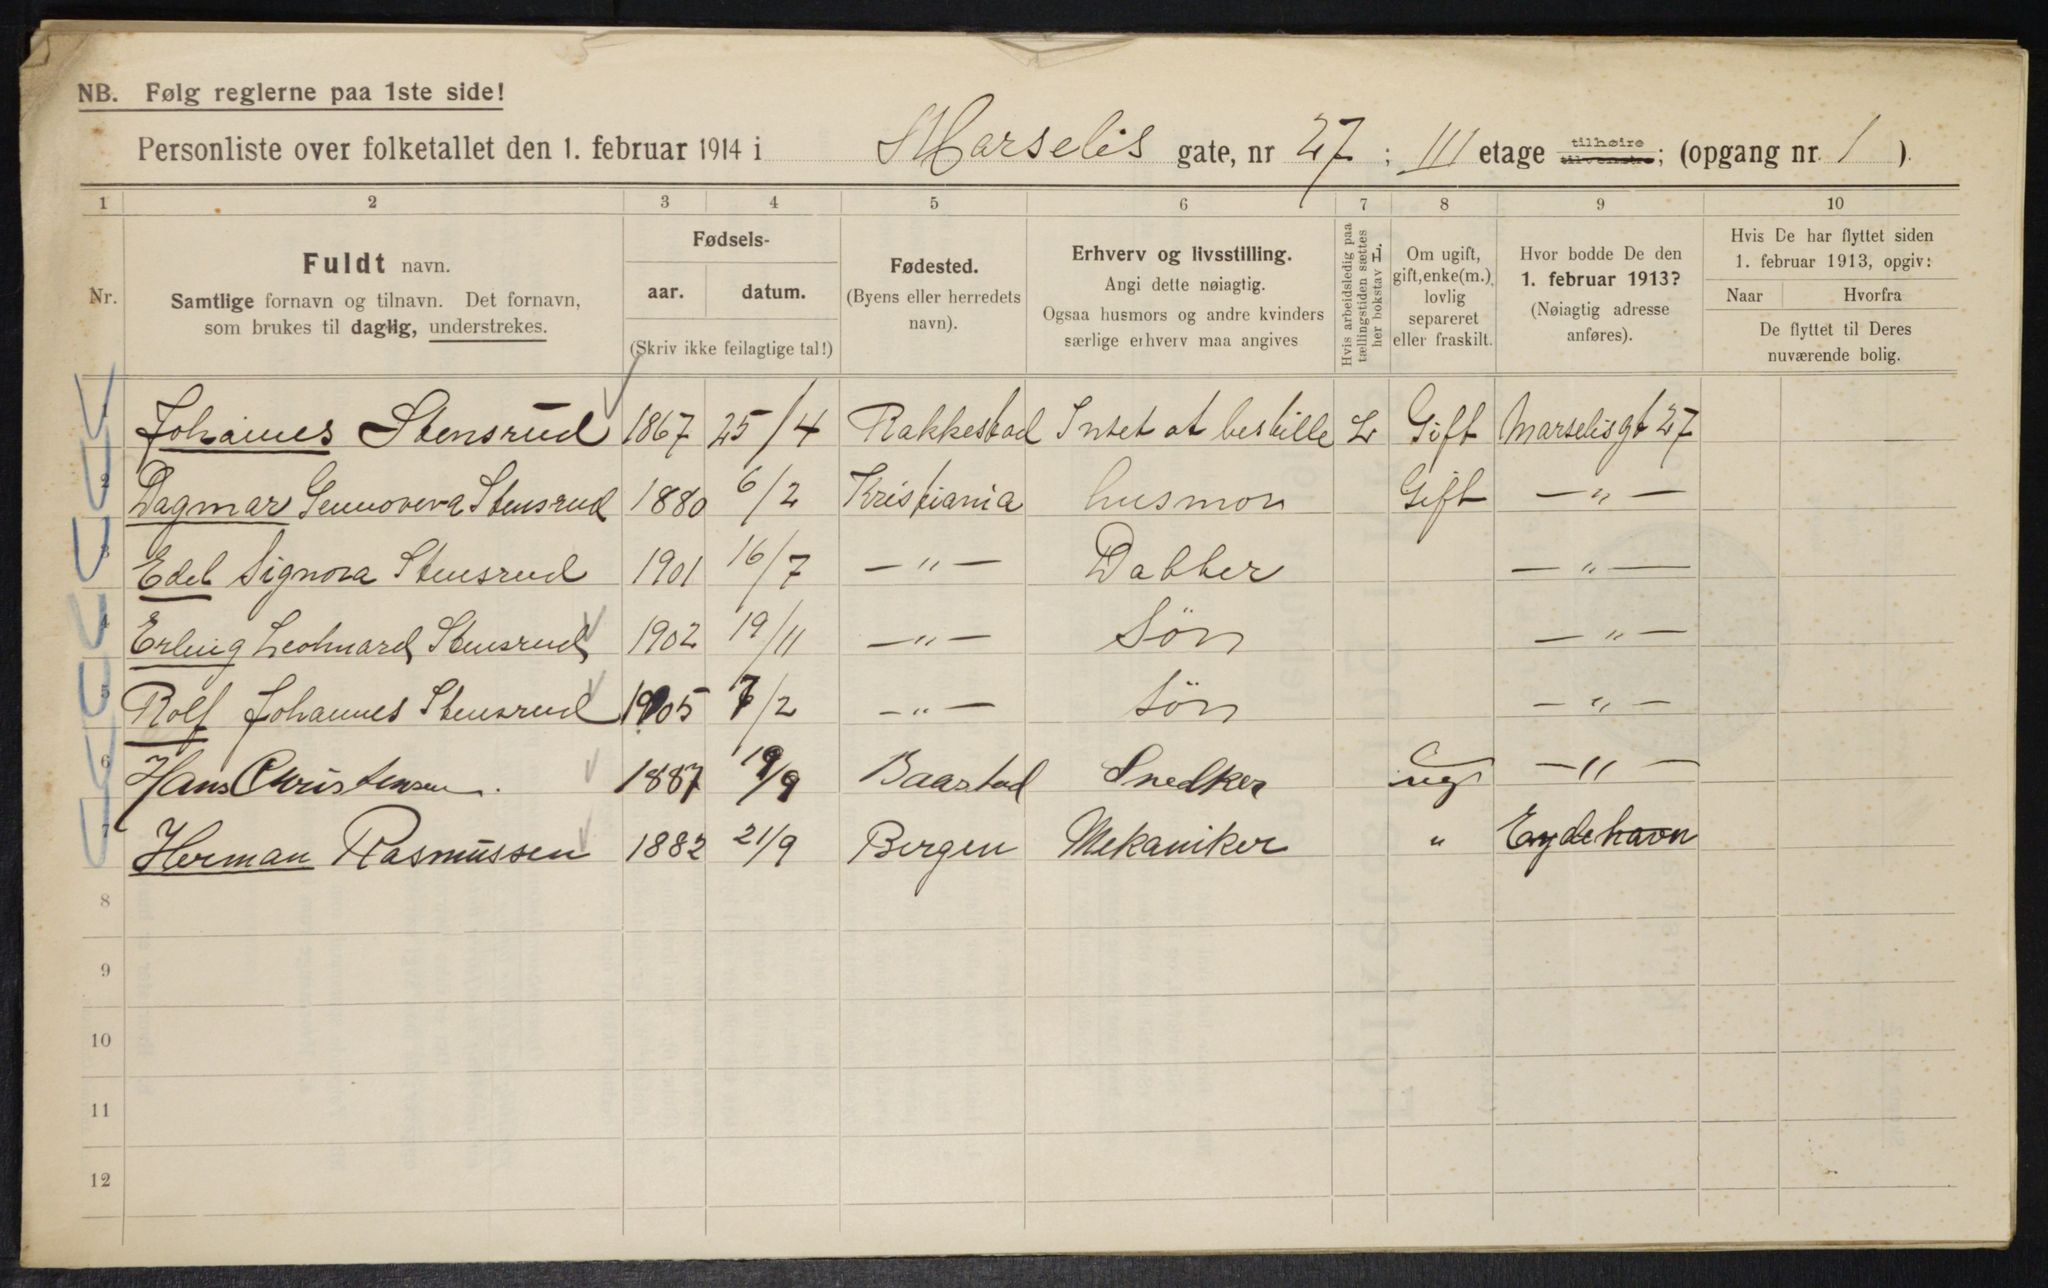 NB. Følg reglerne paa 1ste side!
Personliste over folketallet den 1. februar 1914 i Marselis gate, nr 27; III etage tilhøire tilvenstre; (opgang nr. 1).
1 2 3 4 5 6 7 8 9 10
Nr.
Fuldt navn.
Samtlige fornavn og tilnavn. Det fornavn,
som brukes til daglig, understrekes.
Fødsels-
aar. datum.
(Skriv ikke feilagtige tal!)
Fødested.
(Byens eller herredets
navn).
Erhverv og livsstilling.
Angi dette nøiagtig.
Ogsaa husmors og andre kvinders
særlige erhverv maa angives
Hvis arbeidsledig paa
tællingstiden sættes
her bokstav L.
Om ugift,
gift, enke(m.),
lovlig
separeret
eller fraskilt.
Hvor bodde De den
1. februar 1913?
(Nøiagtig adresse
anføres).
Hvis De har flyttet siden
1. februar 1913, opgiv:
Naar Hvorfra
De flyttet til Deres
nuværende bolig.
1 Johannes Stensrud 1867 25/4 Rakkestad Intet at bestille L Gift Marselisgt 27
2 Dagmar Gennoveva Stensrud 1880 6/2 Kristiania husmor Gift — " —
3 Edel Signora Stensrud 1901 16/7 — " — Datter — " —
4 Erling Leohnard Stensrud 1902 19/11 — " — Søn — " —
5 Rolf Johannes Stensrud 1905 7/2 — " — Søn — " —
6 Hans Christensen. 1887 19/9 Baastad Snedker ug — " —
7 Herman Rasmussen 1882 21/9 Bergen Mekaniker " Eydehavn
8
9
10
11
12